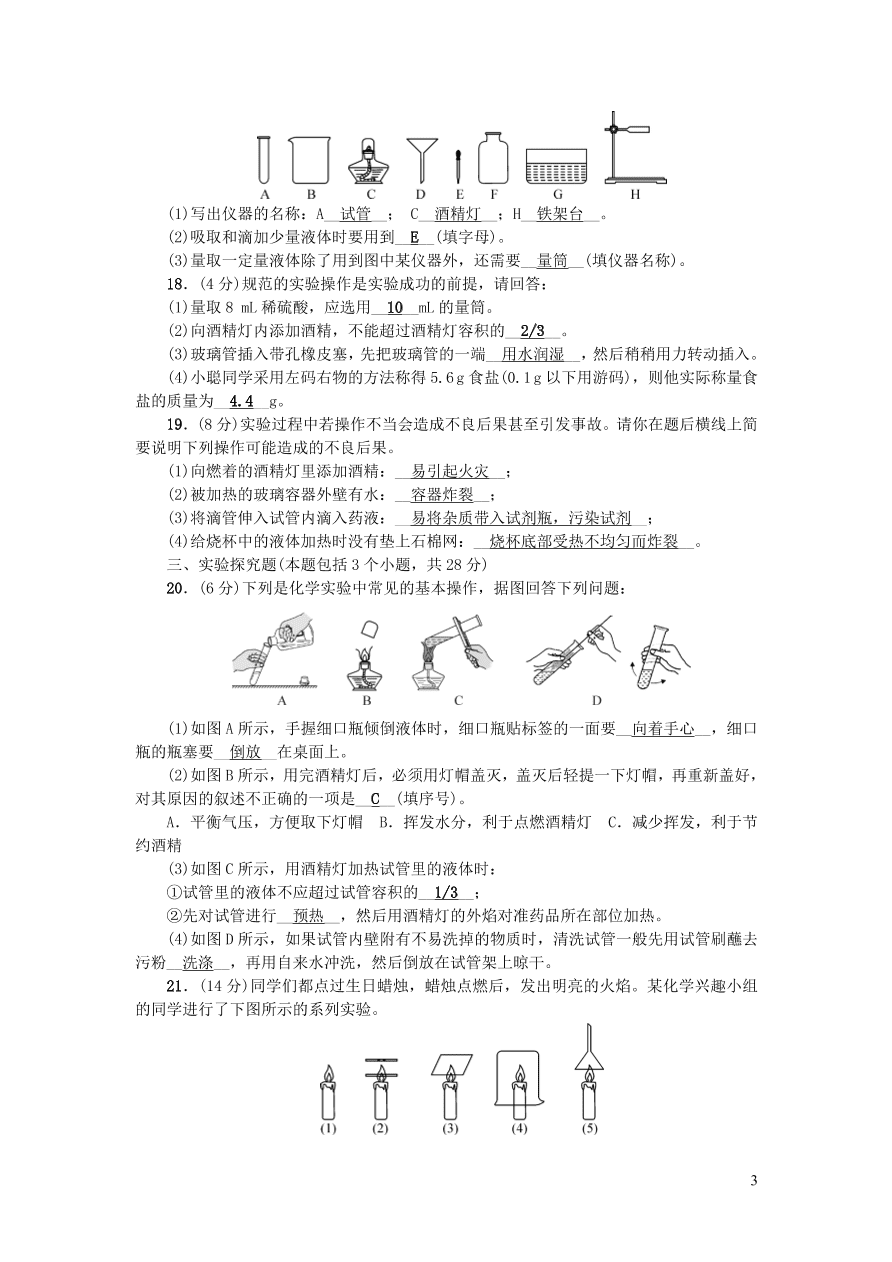 A B C D E F G H
(1)写出仪器的名称：A__试管__； C__酒精灯__；H__铁架台__。
(2)吸取和滴加少量液体时要用到__E__(填字母)。
(3)量取一定量液体除了用到图中某仪器外，还需要__量筒__(填仪器名称)。
18．(4 分)规范的实验操作是实验成功的前提，请回答：
(1)量取 8 mL 稀硫酸，应选用__10__mL 的量筒。
(2)向酒精灯内添加酒精，不能超过酒精灯容积的__2/3__。
(3)玻璃管插入带孔橡皮塞，先把玻璃管的一端__用水润湿__，然后稍稍用力转动插入。
(4)小聪同学采用左码右物的方法称得 5.6 g 食盐(0.1 g 以下用游码)，则他实际称量食
盐的质量为__4.4__g。
19．(8 分)实验过程中若操作不当会造成不良后果甚至引发事故。请你在题后横线上简
要说明下列操作可能造成的不良后果。
(1)向燃着的酒精灯里添加酒精：__易引起火灾__；
(2)被加热的玻璃容器外壁有水：__容器炸裂__；
(3)将滴管伸入试管内滴入药液：__易将杂质带入试剂瓶，污染试剂__；
(4)给烧杯中的液体加热时没有垫上石棉网：__烧杯底部受热不均匀而炸裂__。
三、实验探究题(本题包括 3 个小题，共 28 分)
20．(6 分)下列是化学实验中常见的基本操作，据图回答下列问题：
A B C D
(1)如图 A 所示，手握细口瓶倾倒液体时，细口瓶贴标签的一面要__向着手心__，细口
瓶的瓶塞要__倒放__在桌面上。
(2)如图 B 所示，用完酒精灯后，必须用灯帽盖灭，盖灭后轻提一下灯帽，再重新盖好，
对其原因的叙述不正确的一项是__C__(填序号)。
A．平衡气压，方便取下灯帽 B．挥发水分，利于点燃酒精灯 C．减少挥发，利于节
约酒精
(3)如图 C 所示，用酒精灯加热试管里的液体时：
①试管里的液体不应超过试管容积的__1/3__；
②先对试管进行__预热__，然后用酒精灯的外焰对准药品所在部位加热。
(4)如图 D 所示，如果试管内壁附有不易洗掉的物质时，清洗试管一般先用试管刷蘸去
污粉__洗涤__，再用自来水冲洗，然后倒放在试管架上晾干。
21．(14 分)同学们都点过生日蜡烛，蜡烛点燃后，发出明亮的火焰。某化学兴趣小组
的同学进行了下图所示的系列实验。
(1) (2) (3) (4) (5)
3